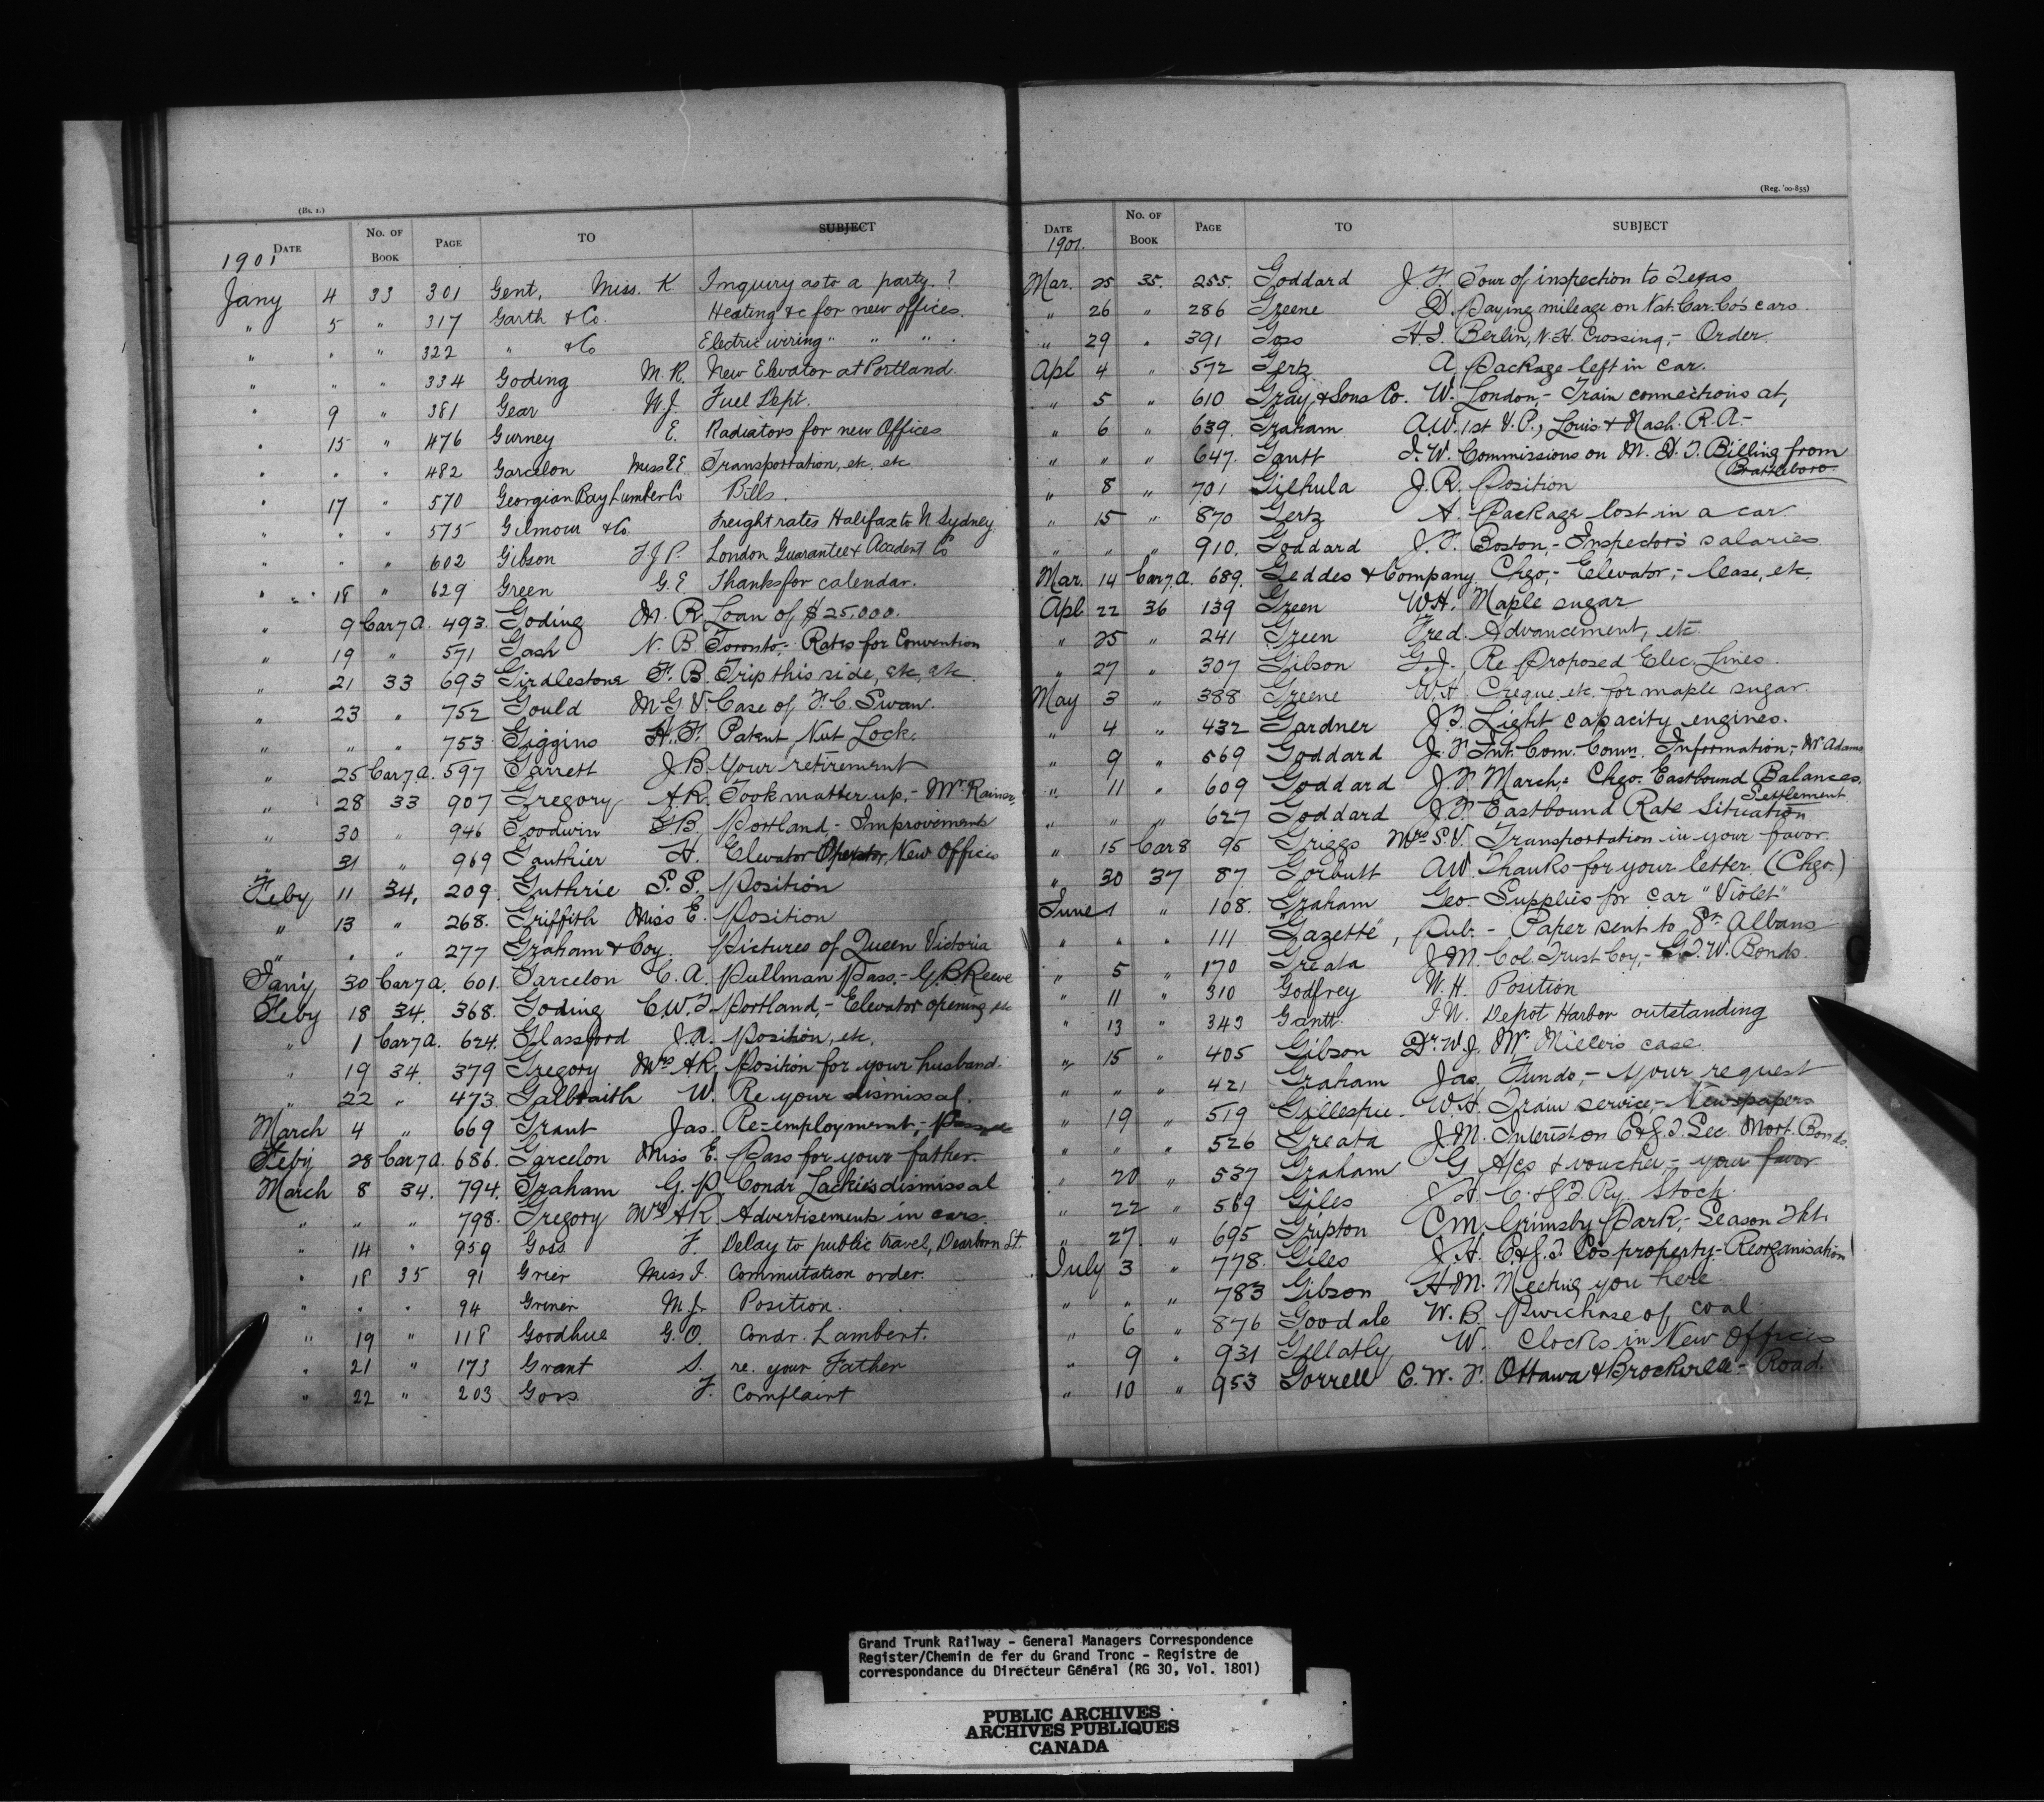 (Bs. 1.)
DATE No. OF BOOK PAGE TO SUBJECT
1901
Jany 4 33 301 Gent, Miss. K Inquiry as to a party. ?
" 5 " 317 Garth & Co. Heating &c for new offices.
" " " 322 " & Co Electric wiring " " " .
" " " 334 Goding M. R. New Elevator at Portland.
" 9 " 381 Gear W. J. Fuel Dept.
" 15 " 476 Gurney E. Radiators for new Offices
" " " 482 Garcelon Miss E Transportation, etc, etc.
" 17 " 570 Georgian Bay Lumber Co Bills.
" " " 575 Gilmour & Co. Freight rates Halifax to N Sydney.
" " " 602 Gibson T J P. London Guarantee & Accident Co
" 18 " 629 Green G. E Thanks for calendar.
" 9 Car 7 a. 493. Goding M. R. Loan of $25,000.
" 19 " 571 Gash N. B. Toronto,- Rates for Convention
" 21 33 693 Girdlestone F. B. Trip this side, etc, etc.
" 23 " 752 Gould M. G. V. Case of F. C. Swan.
" " " 753 Giggins H. F. Patent Nut Lock.
" 25 Car 7. a. 597 Garrett J. B. Your retirement
" 28 33 907 Gregory A. R. Took matter up,- Mr. Rainer.
" 30 " 946 Goodwin G B. Portland - Improvements
" 31 " 969 Gauthier H. Elevator Operator, New Offices
Feby 11 34, 209. Guthrie S. S. Position
" 13 " 268. Griffith Miss E. Position
" " " 277 Graham & Coy. Pictures of Queen Victoria
Jany 30 Car 7 a. 601. Garcelon C. A. Pullman Pass,- G. B. Reeve
Feby 18 34. 368. Goding C. W. T. Portland,- Elevator opening etc
" 1 Car 7 a. 624. Glassford J. A. Position, etc,
" 19 34. 379 Gregory Mrs A R, Position for your husband.
" 22 " 473. Galbraith W. Re your dismissal.
March 4 " 669 Grant Jas. Re-employment,-
Feby 28 Car 7 a. 686. Garcelon Miss E. Pass for your father.
March 8 34. 794. Graham G. P. Condr Lackie's dismissal
" " " 798. Gregory Mrs A R. Advertisements in cars.
" 14 " 959 Goss F. Delay to public travel, Dearborn St.
" 18 35 91 Grier Miss I. Commutation order.
" " " 94 Griner M. J. Position.
" 19 " 118 Goodhue G. O. Condr. Lambert.
" 21 " 173 Grant S. re. your Father
" 22 " 203 Goss. F. Complaint
(Reg. '00-855)
DATE No. OF BOOK PAGE TO SUBJECT
1901.
Mar. 25 35. 255. Goddard J. F. Tour of inspection to Texas
" 26 " 286 Greene D. Paying mileage on Nat. Car. Co's cars.
" 29 " 391 Goss H. I. Berlin, N. H. Crossing,- Order.
Apl 4 " 572 Gertz A. Package left in car.
" 5 " 610 Gray, & Sons Co. W. London,- Train connections at,
" 6 " 639. Graham A. W. 1st V. P., Louis. & Nash. R. A.-
" " " 647. Gantt I. W. Commissions on M. D. T. Billing from
Brattleboro.
" 8 " 701 Gilhula J. R. Position
" 15 " 870 Gertz A. Package lost in a car.
" " " 910. Goddard J. F. Boston,- Inspectors' salaries
Mar. 14 Car 7. a. 689. Geddes & Company. Chgo,- Elevator,- lease, etc.
Apl 22 36 139 Green W. H. Maple sugar
" 25 " 241 Green Fred. Advancement, etc.
" 27 " 307 Gibson G. J. Re Proposed Elec. Lines.
May 3 " 388 Greene W. H. Cheque, etc. for maple sugar.
" 4 " 432 Gardner J. B. Light capacity engines.
" 9 " 569 Goddard J. F. Int. Com. Comn. Information,- Mr Adams
" 11 " 609 Goddard J. F. March,- Chgo. Eastbound Balances.
Settlement
" " " 627 Goddard J. F. Eastbound Rate Situation
" 15 Car 8 95 Griggs Mrs S. V. Transportation in your favor.
" 30 37 87 Gorbutt A W. Thanks for your letter (Chgo.)
June 1 " 108. Graham Geo. Supplies for car "Violet"
" " " 111 "Gazette", Pub. - Paper sent to St. Albans
" 5 " 170 Greata J. M. Col. Trust Coy,- G. T. W. Bonds.
" 11 " 310 Godfrey W. H. Position
" 13 " 343 Gantt. I. W. Depot Harbor outstanding
" 15 " 405 Gibson Dr. W. J. Mr. Miller's case.
" " " 421 Graham Jas. Funds,- your request
" 19 " 519 Gillespie. W. H. Train service,- Newspapers
" " " 526 Greata J. M. Interest on C & G. T. Sec. Mort. Bonds.
" 20 " 537 Graham G A/cs & voucher,- your favor.
" 22 " 569 Giles J. H. C. & G. T. Ry. Stock.
" 27 " 695 Gripton C M. Grimsby Park,- Season Tkt.
July 3 " 778. Giles J. H. C. & G. T. Co's property,- Reorganisation
" " " 783 Gibson H. M. Meeting you here.
" 6 " 876 Goodale W. B. Purchase of coal.
" 9 " 931 Gellatly W. Clocks in New Offices
" 10 " 953 Gorrell C. W. F. Ottawa & Brockville - Road.
Grand Trunk Railway - General Managers Correspondence
Register/Chemin de fer du Grand Tronc - Registre de
correspondance du Directeur Général (RG 30, Vol. 1801)
PUBLIC ARCHIVES
ARCHIVES PUBLIQUES
CANADA